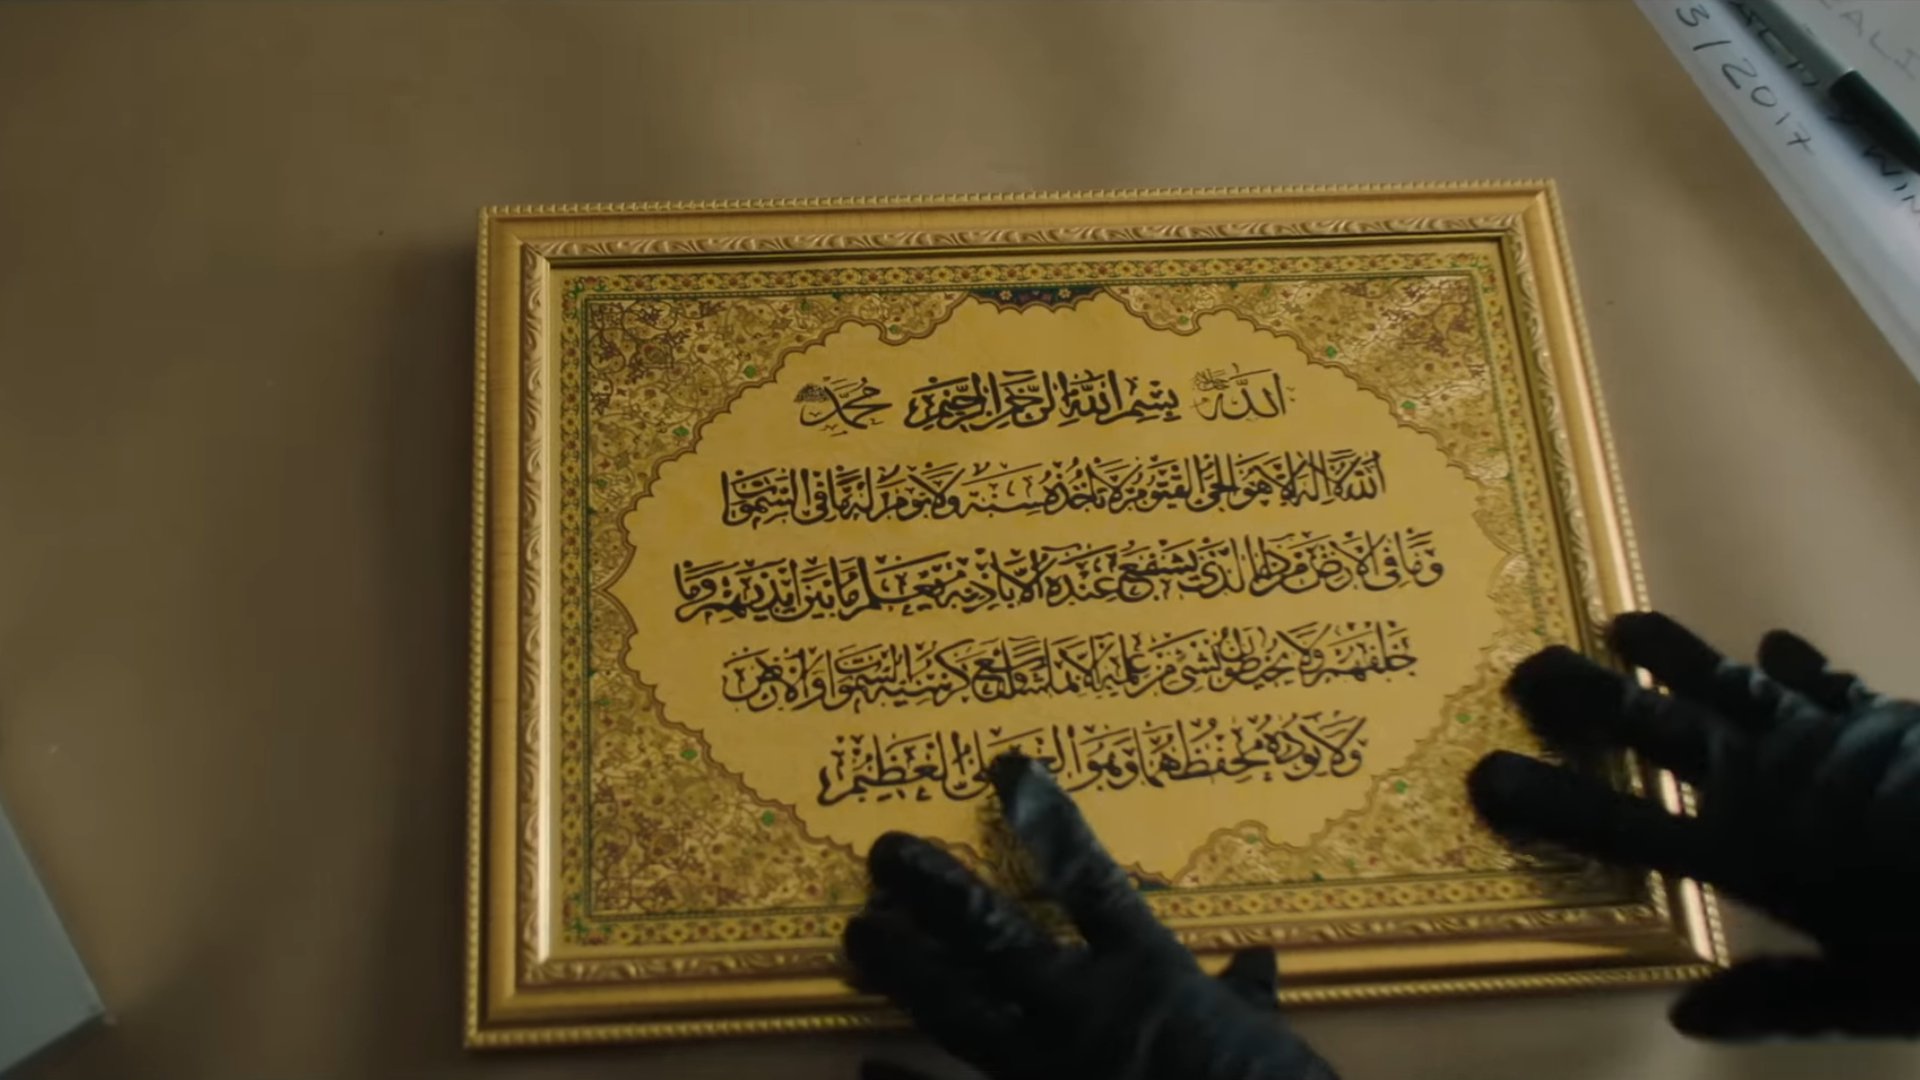 الله بسم الله الرحمن الرحيم محمد
الله لا إله إلا هو الحي القيوم لا تأخذه سنة ولا نوم له ما في السموات
وما في الأرض من ذا الذي يشفع عنده إلا بإذنه يعلم ما بين أيديهم وما
خلفهم ولا يحيطون بشيء من علمه إلا بما شاء وسع كرسيه السموات والأرض
ولا يؤده حفظهما وهو العلي العظيم
3/2017